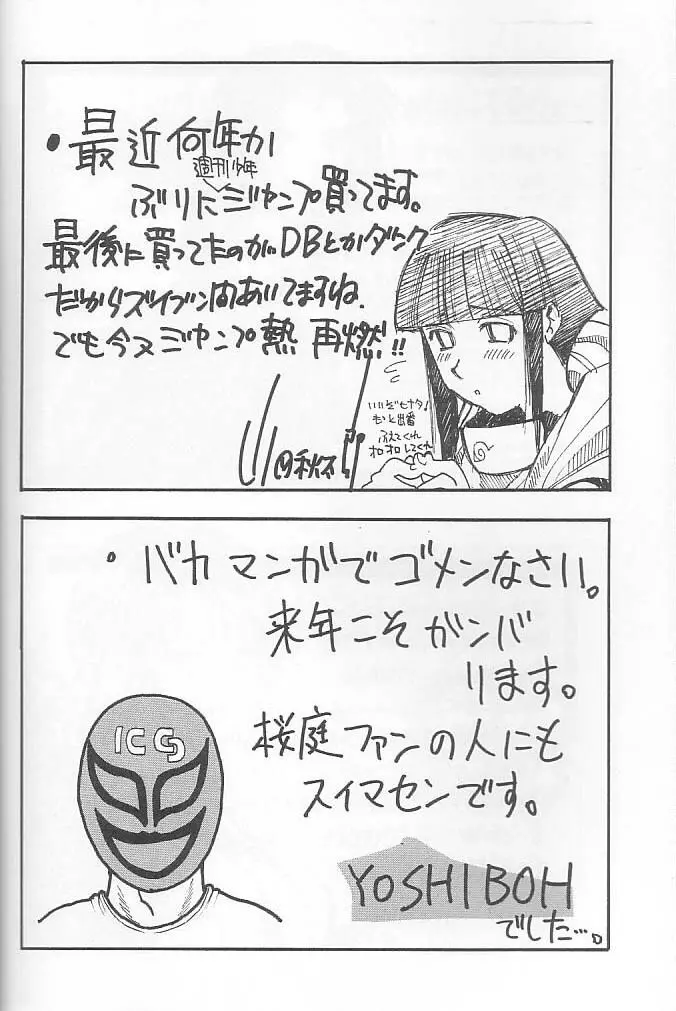 ・最近何年か
週刊少年
ぶりにジャンプ買ってます。
最後に買ってたのがDBとかダンク
だからズイブン間あいてますね.
でも今又ジャンプ熱 再燃!!
いいぞヒナタ!
もっと出番
ふえてくれ
オロオロしてくれ
・バカマンガでゴメンなさい。
来年こそガンバ
ります。
桜庭ファンの人にも
スイマセンです。
YOSHIBOH
でした…。